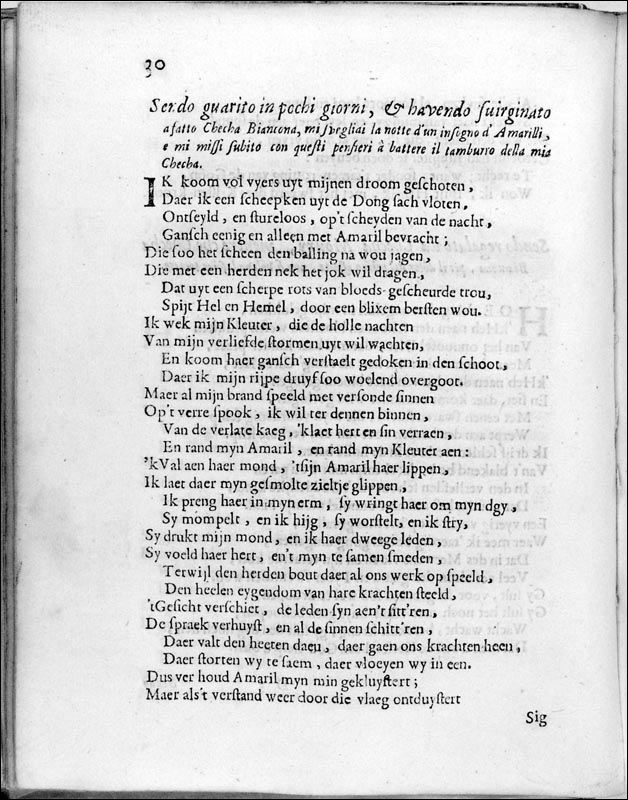 30
Sendo guarito in pochi giorni, & havendo suirginato
afatto Checha Biancona, mi svegliai la notte d'un insogno d'Amarilli,
e mi missi subito con questi pensieri à battere il tamburro della mia
Checha.
IK koom vol vyers uyt mijnen droom geschoten,
Daer ik een scheepken uyt de Dong sach vloten,
Ontseyld, en stureloos, op't scheyden van de nacht,
Gansch eenig en alleen met Amaril bevracht;
Die soo het scheen den balling na wou jagen,
Die met een herden nek het jok wil dragen,
Dat uyt een scherpe rots van bloeds-gescheurde trou,
Spijt Hel en Hemel, door een blixem bersten wou.
Ik wek mijn Kleuter, die de holle nachten
Van mijn verliefde stormen uyt wil wachten,
En koom haer gansch verstaelt gedoken in den schoot,
Daer ik mijn rijpe druyf soo woelend overgoot.
Maer al mijn brand speeld met versonde sinnen
Op't verre spook, ik wil ter dennen binnen,
Van de verlate kaeg, 'k laet hert en sin verraen,
En rand myn Amaril, en rand myn Kleuter aen:
'kVal aen haer mond, 'tsijn Amaril haer lippen,
Ik laet daer myn gesmolte zieltje glippen,
Ik preng haer in myn erm, sy wringt haer om myn dgy,
Sy mompelt, en ik hijg, sy worstelt, en ik stry,
Sy drukt mijn mond, en ik haer dweege leden,
Sy voeld haer hert, en't myn te samen smeden,
Terwijl den herden bout daer al ons werk op speeld,
Den heelen eygendom van hare krachten steeld,
'tGesicht verschiet, de leden syn aen't sitt'ren,
De spraek verhuyst, en al de sinnen schitt'ren,
Daer valt den heeten daeu, daer gaen ons krachten heen,
Daer storten wy te saem, daer vloeyen wy in een.
Dus ver houd Amaril myn min gekluystert;
Maer als't verstand weer door die vlaeg ontduystert
Sig